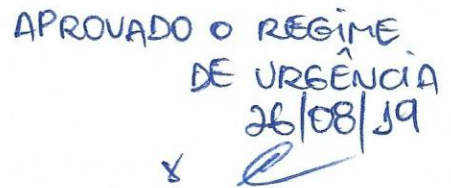 APROVADO O REGIME
DE URGÊNCIA
26/08/19